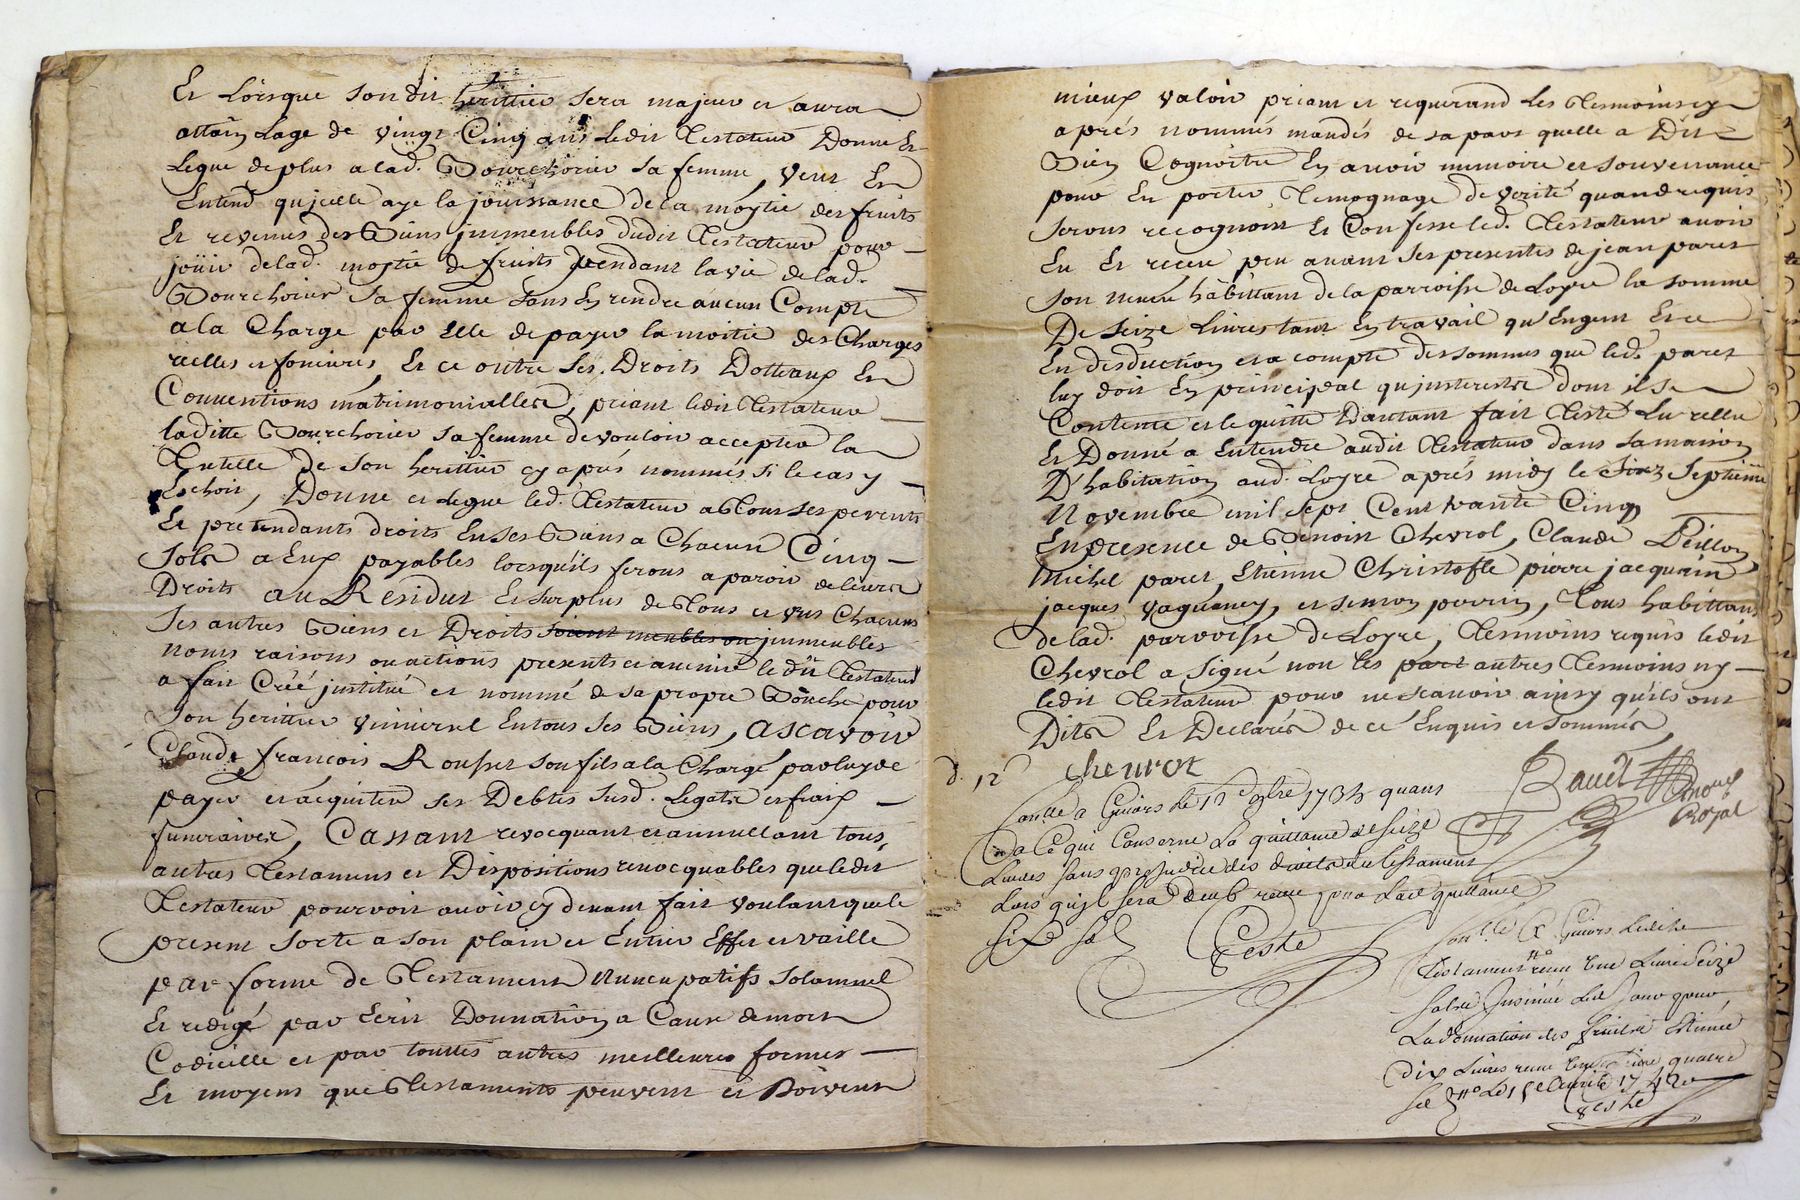 Et Lorsque son dit hérittier sera majeur et aura
attain Lage de vingt Cinq ans ledit Testateur Donne Et
Legue de plus a lad. Bourchorier sa femme, veut Et
Entend qu'icelle aye la jouissance de la moytié des fruits
Et revenus des Biens immeubles dudit Testateur pour
joüir delad. moytié de fruits pendant la vie delad.
Bourchorier sa femme sans En rendre aucun Compte
a la Charge par Elle de payer la moitié des Charges
réelles et foncieres, Et ce outre ses Droits Dottaux Et
Conventions matrimonialles, priant ledit Testateur
laditte Bourchorier sa femme de vouloir accepter la
Tutelle de son herittier cy aprés nommés si le cas y
Echoit, Donne et Legue led. Testateur a Tous ses parents
Et pretendants droits En ses Biens a Chacun Cinq
Sols a Eux payables lorsqu'ils feront aparoir de leurs
Droits au Residut Et surplus de Tous et uns Chacuns
Ses autres Biens et Droits soient meubles ou immeubles
noms raisons ou actions presents et avenir le dit Testateur
a fait Créé jnstitué et nommé de sa propre Bouche pour
Son herittier vniversel En tous ses Biens, ascavoir
Claude françois Rousset son fils a la Chargé par luy de
payer et acquiter ses Debtes susd. Legats et fraix
funeraires, Cassant revocquant et annullant tous
autres Testaments et Dispositions revocquables que ledit
Testateur pourroit avoir cy devant fait voulant que le
present sorte a son plain et Entier Effet et vaille
par forme de Testament nuncupatifs solamnel
Et redigé par Ecrit Donnation a Cause de mort
Codicille et par touttes autres meilleures formes
Et moyens que Testaments peuvent et Doivent
mieux valoir priant et requerand les Tesmoins cy
aprés nommés mandés de sa part quelle a Dit
Bien Cognoître En avoir memoire et souvenance
pour En porter Temognage de verité quand requis
seront recognoit Et Confesse led. Testateur avoir
Eu Et receu peu avant ses presentes de jean paret
son neveu habittant de la parroisse de Loyre la somme
De seize Livres tant En travail qu'Engent Et ce
En desduction et a compte des sommes que led. paret
luy doit En principal qu'justerests dont il se
Contente et le quitte D'autant fait Testé Lu rellu
Et Donné a Entendre audit Testateur dans sa maison
D'habitation aud. Loyre aprés midy le Septieme
Novembre mil sept Cent trante Cinq
En presence de Benoist Chevrol, Claude Peillon
Michel paret, Etienne Christofle pierre jacquin
jacques vaganey, et simon perrin, Tous habittans
delad. parroisse de Loyre, Tesmoins requis ledit
Chevrol a signé non les part autres Tesmoins ny
ledit Testateur pour ne scavoir ainsy qu'ils ont
Dits Et Declarés de ce Enquis et sommés
d. 12s Chevrot
Baudt
Royal
Conllé a Givors le 11e 9bre 1735 quant
a Ce que Conserne La quittance de seize
Livres sans prejudice des droits du testament
Lors qu'il sera deub receu pour Lad quittance
six sol Teste
Conllé a Givors Ledit
Testament receu Une Livre seize
sols Insinué led jour pour
La donnation des fruits Estimée
Dix Livres receu quatre
1740
Teste